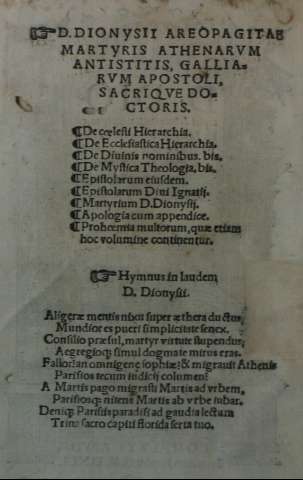 ☞D. DIONYSII AREOPAGITAE
MARTYRIS ATHENARVM
ANTISTITIS, GALLIA-
RVM APOSTOLI,
SACRIQVE DO-
CTORIS.
¶De cœlesti Hierarchia.
¶De Ecclesiastica Hierarchia.
¶De Diuinis nominibus. bis.
¶De Mystica Theologia, bis.
¶Epistolarum eiusdem.
¶Epistolarum Diui Ignatij.
¶Martyrium D. Dionysij.
¶Apologia cum appendice.
¶Prohœmia multorum, quæ etiam
hoc volumine continentur.
☞Hymnus in laudem
D. Dionysii.
Aligeræ mentis nixu super æthera ductus,
Mundior es pueri simplicitate senex.
Consilio præsul, martyr virtute stupendus,
Aegregioq; simul dogmate mirus eras.
Fallor? an omnigenę sophiæ? & migrauit Athenis
Parisios tecum iudicij columen?
A Martis pago migrasti Martis ad vrbem,
Parisiosq; nitens Martis ab vrbe iubar.
Deniq; Parisiis paradisi ad gaudia lectum
Trina sacro capiti florida serta tuo.